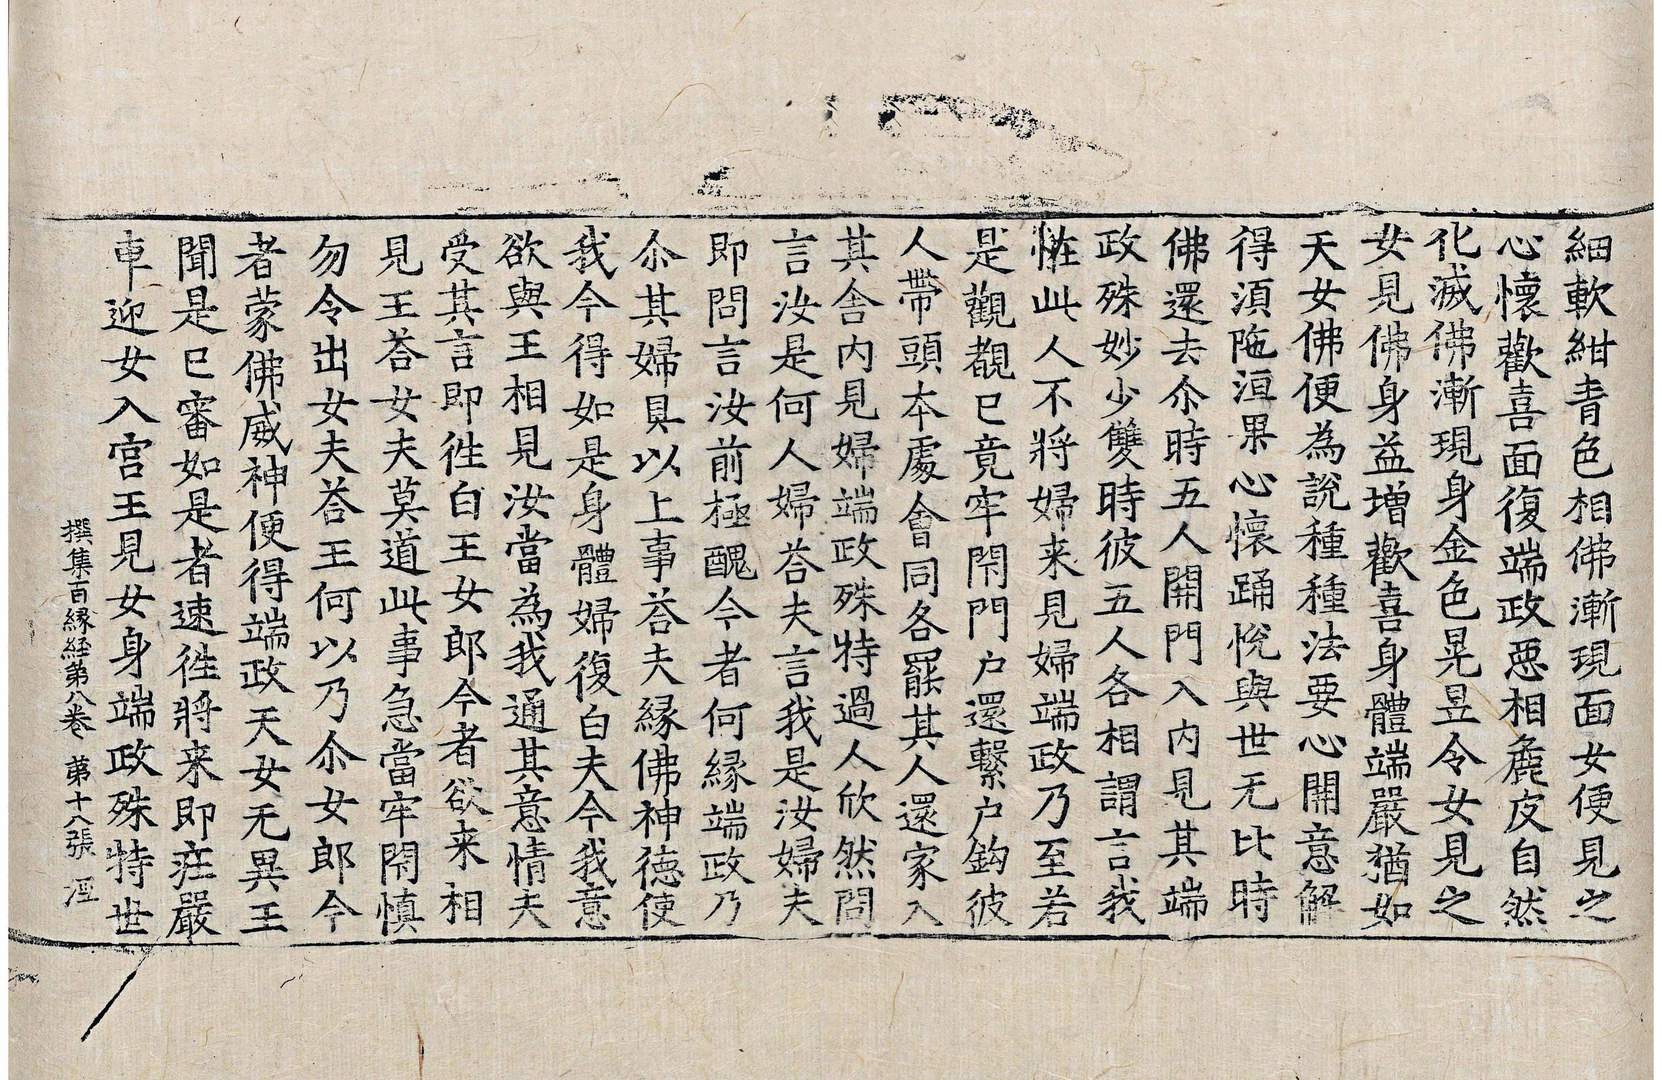 細軟紺青色相佛漸現面女便見之
心懷歡喜面復端政惡相麁皮自然
化滅佛漸現身金色晃昱令女見之
女見佛身益增歡喜身體端嚴猶如
天女佛便為說種種法要心開意解
得湏陁洹果心懷踊悅與世无比時
佛還去尒時五人開門入內見其端
政殊妙少雙時彼五人各相謂言我
恠此人不將婦来見婦端政乃至若
是觀覩已竟牢閇門户還繫户鈎彼
人帶頭本處會同各罷其人還家入
其舎內見婦端政殊特過人欣然問
言汝是何人婦荅夫言我是汝婦夫
即問言汝前極醜今者何緣端政乃
尒其婦具以上事荅夫緣佛神德使
我今得如是身體婦復白夫今我意
欲與王相見汝當為我通其意情夫
受其言即徃白王女郎今者欲来相
見王荅女夫莫道此事急當牢閇慎
勿令出女夫荅王何以乃尒女郎今
者蒙佛威神便得端政天女无異王
聞是已審如是者速徃將来即庄嚴
車迎女入宫王見女身端政殊特世
撰集百緣経第八卷 第十八張 涇